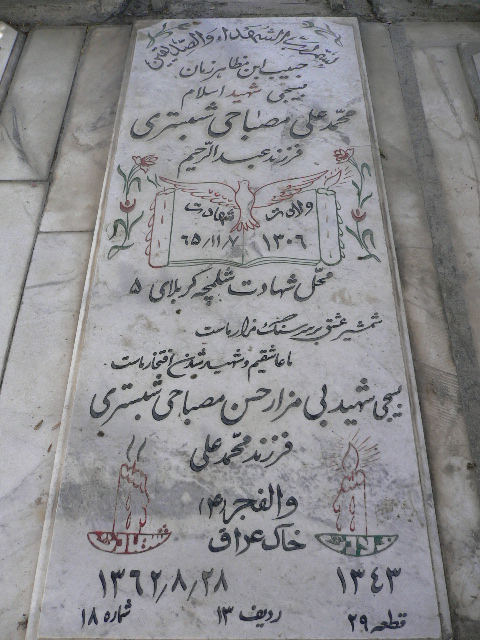 زیارتگاه الشهداء والصدیقین
حبیب ابن مظاهر زمان
بسیجی شهید اسلام
محمد علی مصباحی شبستری
فرزند عبدالرحیم
ولادت شهادت
۱۳۰۶ ۶۵/۱۱/۷
محل شهادت شلمچه کربلای ۵
شمشیر عشق بر سر سنگ مزار ماست
ما عاشقیم و شهید شدن افتخار ماست
بسیجی شهید بی مزار حسن مصباحی شبستری
فرزند محمد علی
والفجر (۴)
خاک عراق
۱۳۴۳ ۱۳۶۲/۸/۲۸
قطعه ۲۹ ردیف ۱۳ شماره ۱۸